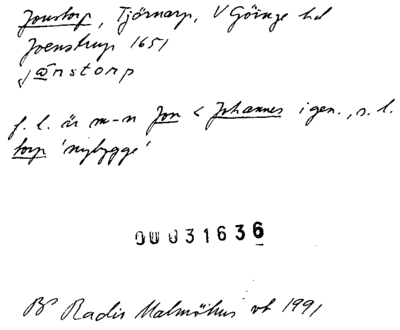 Jonstorp, Tjörnarp, V Göinge hd
Joenstrup 1651
jånstorp
f. l. är m-n Jon < Johannes i gen., s. l.
torp 'nybygge'
00031636
BP Radio Malmöhus vt 1991